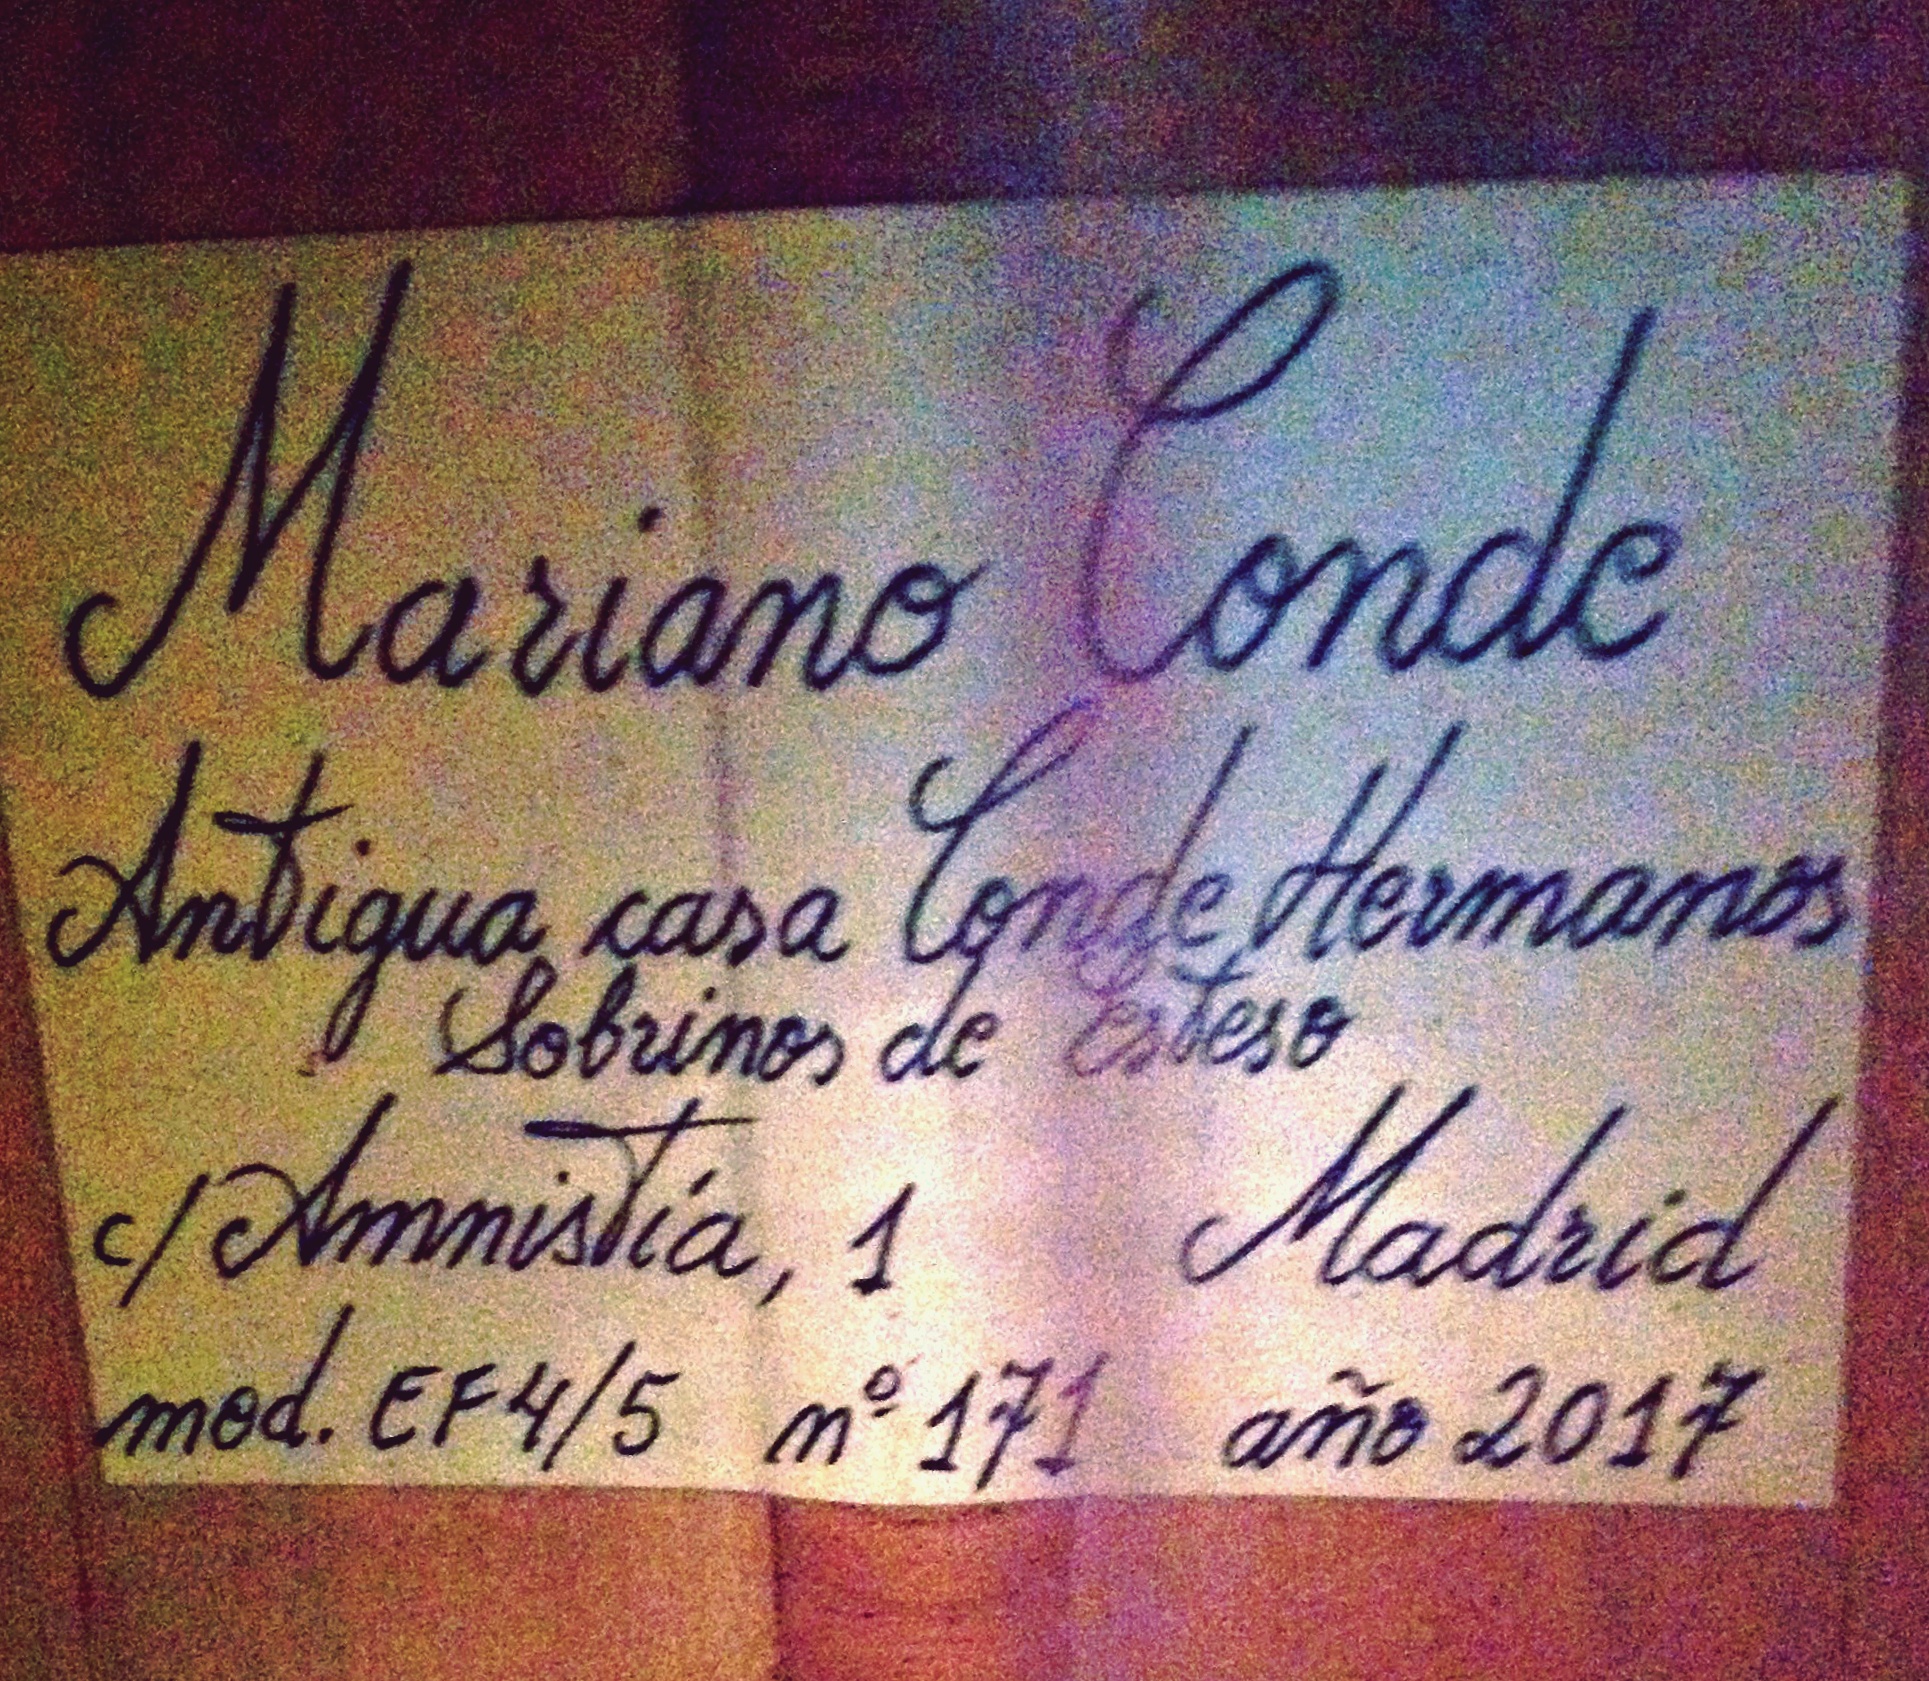 Mariano Conde
Antigua casa Conde Hermanos
Sobrinos de esteso
c/ Amnistía, 1 Madrid
mod. EF4/5 nº 171 año 2017